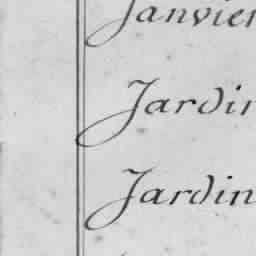 Janvier
Jardin
Jardin